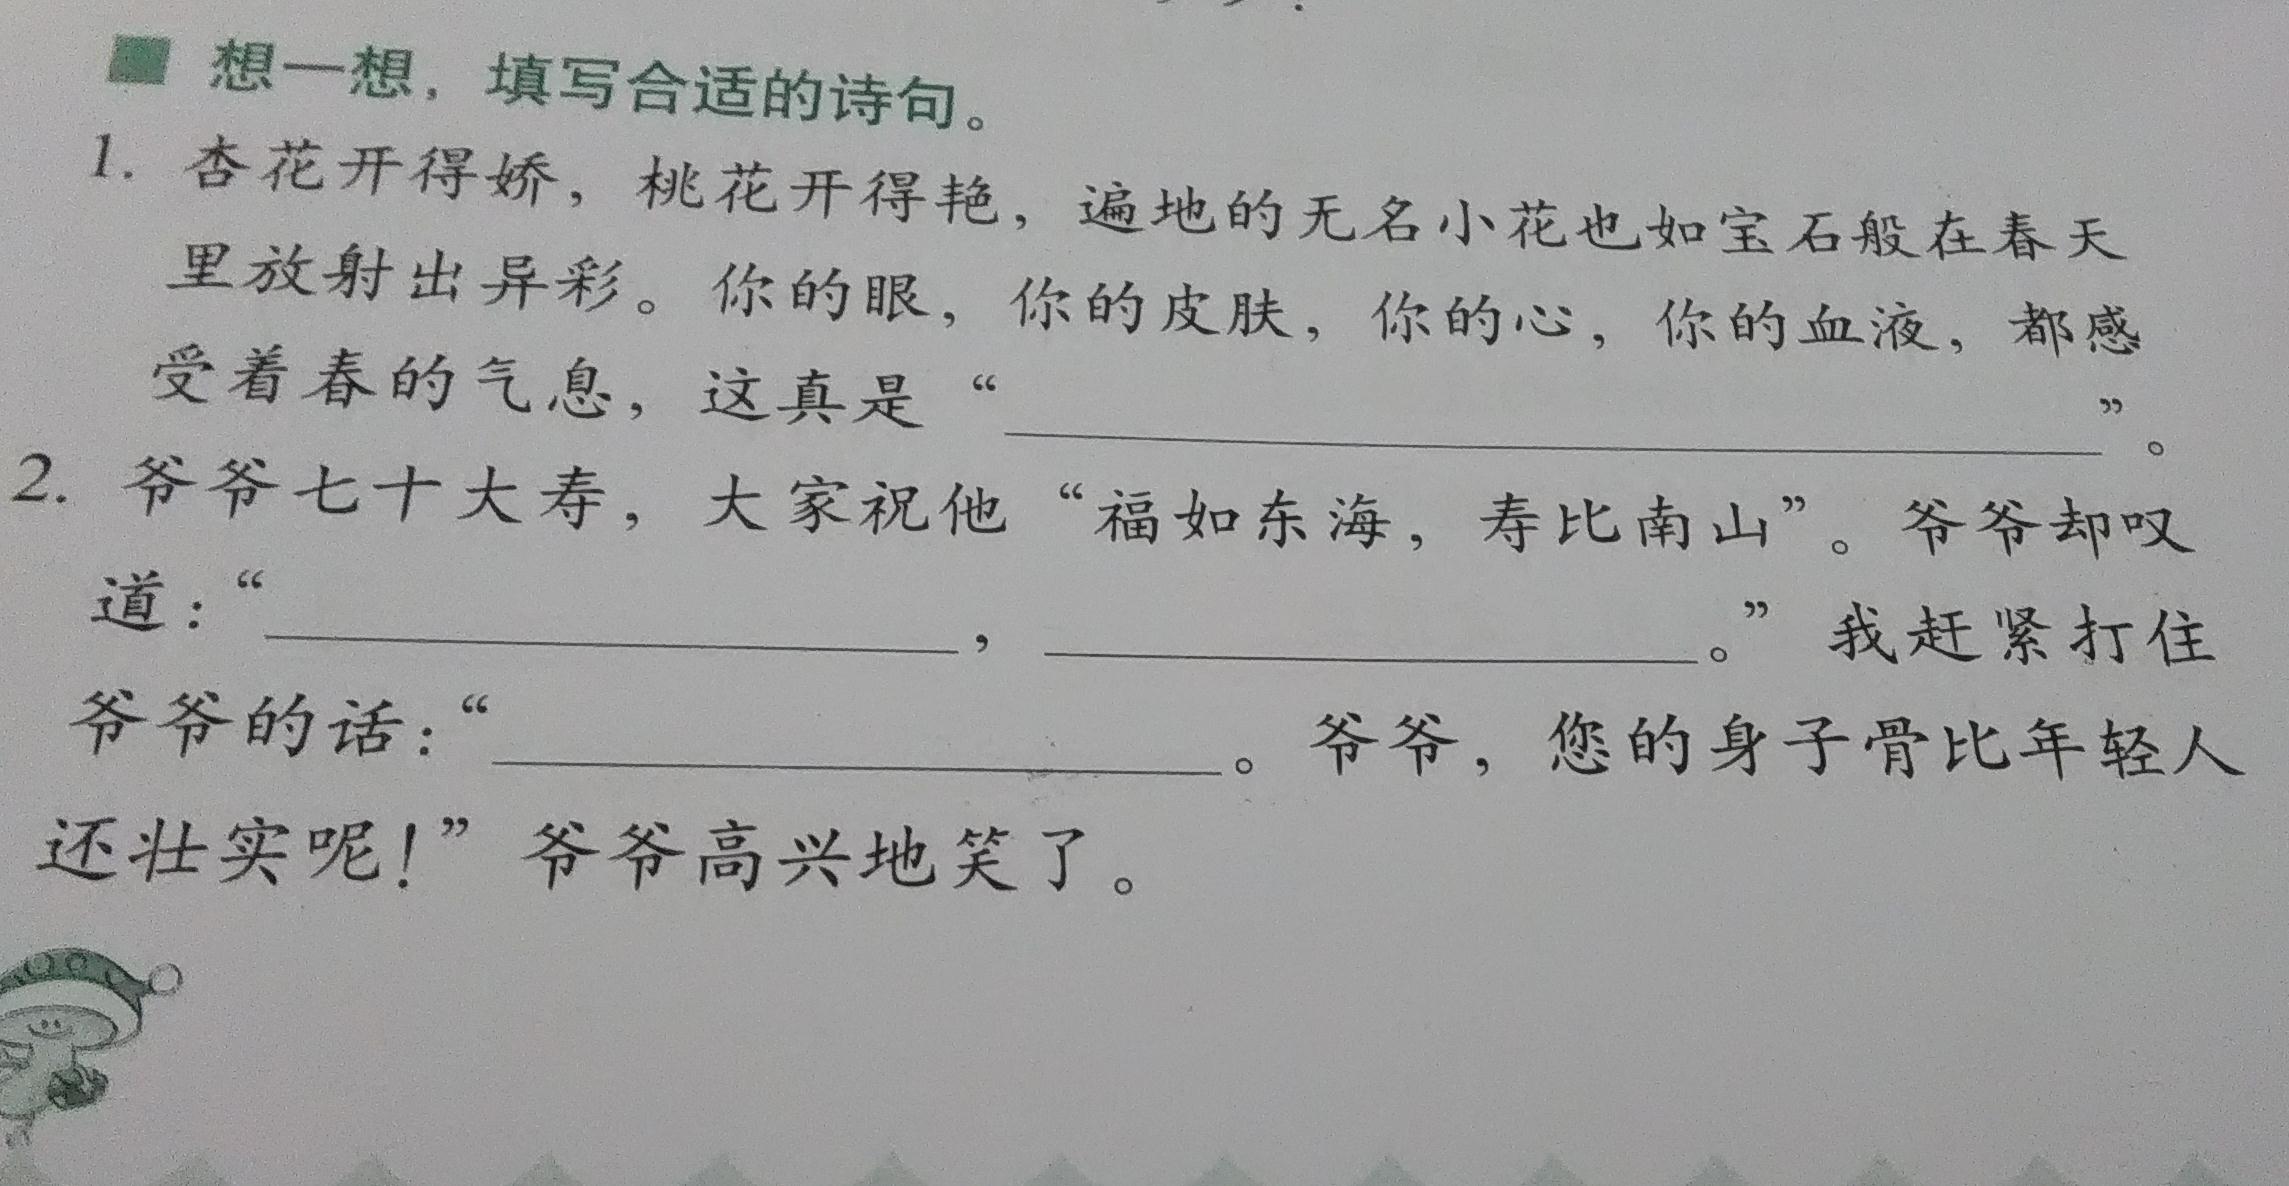 想一想，填写合适的诗句。
1. 杏花开得娇，桃花开得艳，遍地的无名小花也如宝石般在春天
里放射出异彩。你的眼，你的皮肤，你的心，你的血液，都感
受着春的气息，这真是“                    ”。
2. 爷爷七十大寿，大家祝他“福如东海，寿比南山”。爷爷却叹
道：“                    ，                    。”我赶紧打住
爷爷的话：“                    。爷爷，您的身子骨比年轻人
还壮实呢！”爷爷高兴地笑了。